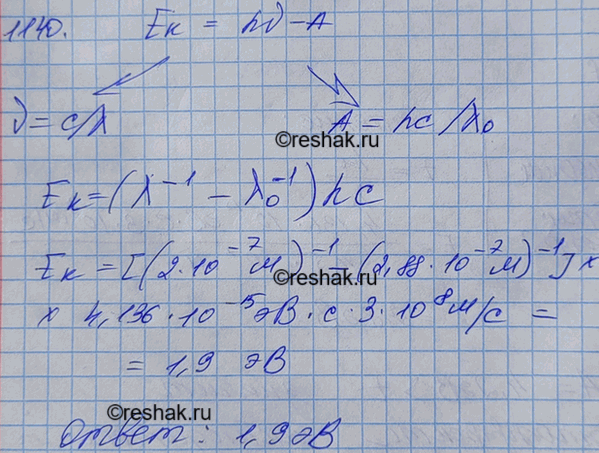 1140. Eк = hν - A
ν = c/λ A = hc/λ₀
©reshak.ru
Eк = (λ⁻¹ - λ₀⁻¹) hc
Eк = [(2·10⁻⁷ м)⁻¹ - (2,88·10⁻⁷ м)⁻¹] x
x 4,136·10⁻¹⁵ эВ·с·3·10⁸ м/с =
= 1,9 эВ
©reshak.ru
Ответ: 1,9 эВ